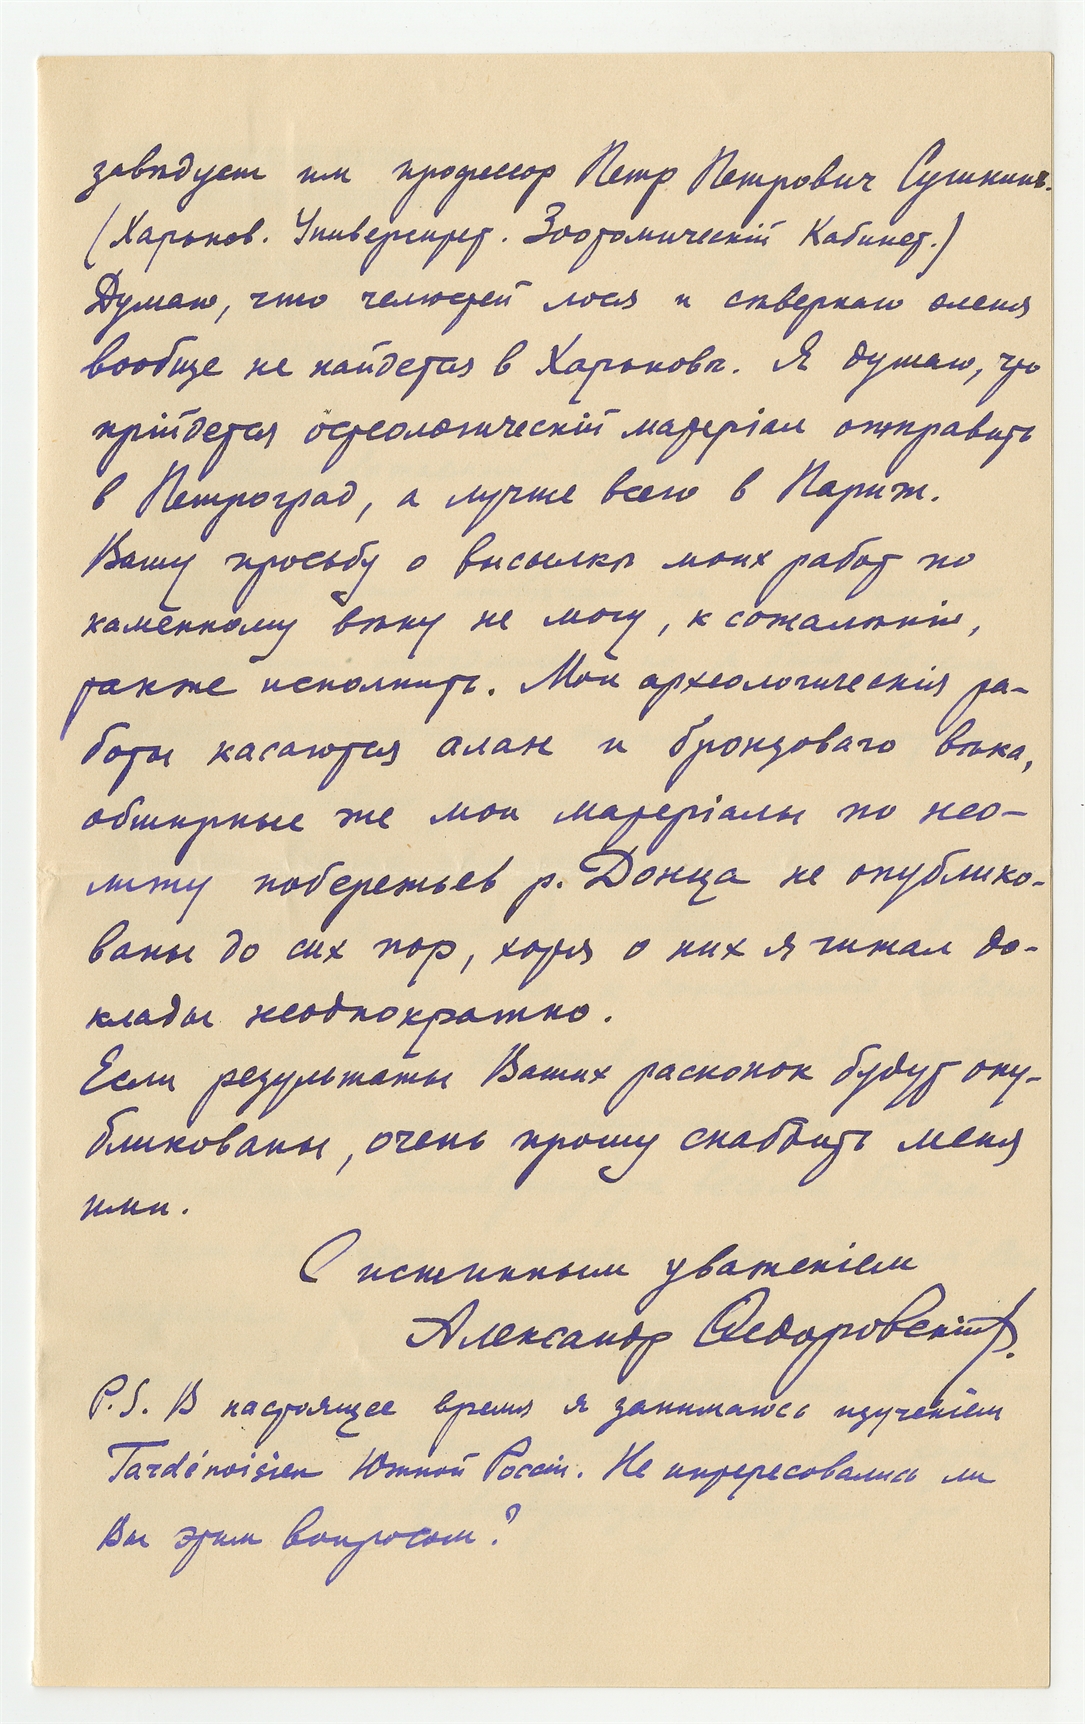 завѣдует им профессор Петр Петрович Сушкинъ.
(Харьков. Университет. Зоотомическій Кабинет.)
Думаю, что челюстей лося и сѣвернаго оленя
вообще не найдется в Харьковѣ. Я думаю, что
прійдется остеологическій матеріал отправить
в Петроград, а лучше всего в Париж.
Вашу просьбу о высылкѣ моих работ по
каменному вѣку не могу, к сожалѣнію,
также исполнить. Мои археологическія ра-
боты касаются алан и бронзоваго вѣка,
обширные же мои матеріалы по нео-
литу побережьев р. Донца не опублико-
ваны до сих пор, хотя о них я читал до-
клады неоднократно.
Если результаты Ваших раскопок будут опу-
бликованы, очень прошу снабдить меня
ими.
С истинным уваженіем
Александр Федоровскій.
P.S. В настоящее время я занимаюсь изученіем
Tardénoisien Южной Россіи. Не интересовались ли
Вы этим вопросом?